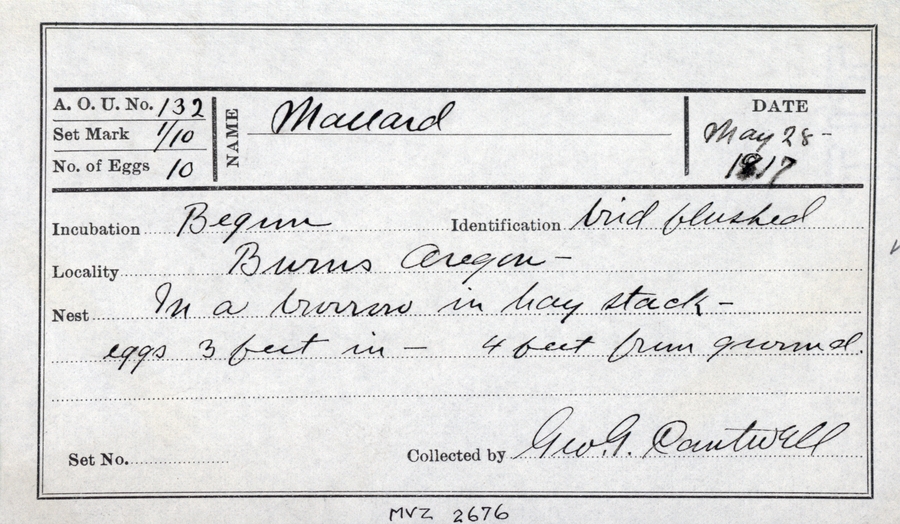 A. O. U. No. 132
Set Mark 1/10
No. of Eggs 10
NAME Mallard
DATE
May 28 -
1917
Incubation Begun Identification bird flushed
Locality Burns Oregon -
Nest In a burrow in hay stack -
eggs 3 feet in - 4 feet from ground.
Set No.
Collected by Geo. G. Cantwell
MVZ 2676